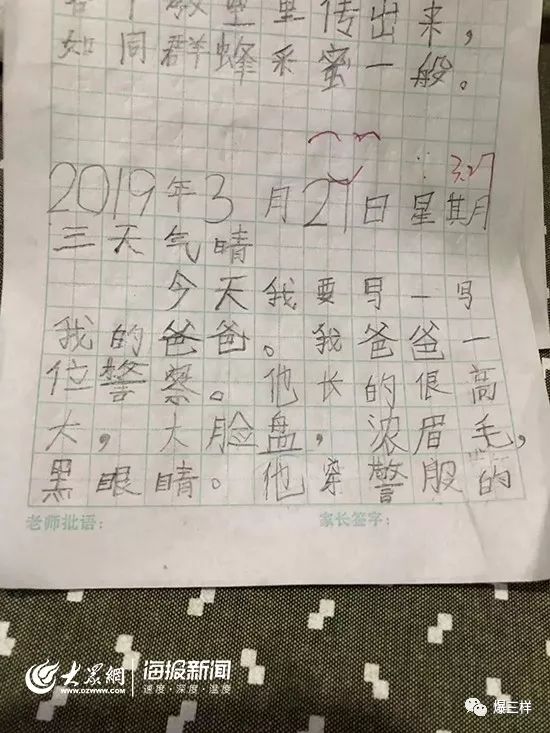 教室里传出来,
如同群蜂采蜜一般。
3.27
2019年3月27日星期
三天气晴
今天我要写一写
我的爸爸。我爸爸一
位警察。他长的很高
大,大脸盘,浓眉毛,
黑眼睛。他穿警服的
老师批语: 家长签字:
大众网 海报新闻
WWW.DZWWW.COM 速度·深度·温度
爆三样